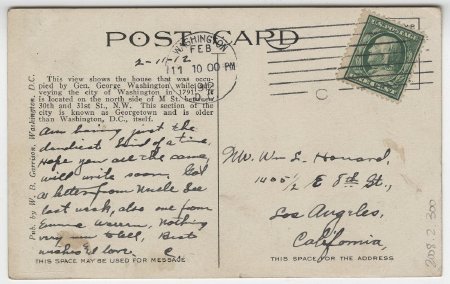 POST CARD
WASHINGTON
FEB
11 10 00 PM
1912
D.C.
2-11-12
This view shows the house that was occu-
pied by Gen. George Washington while sur-
veying the city of Washington in 1791. It
is located on the north side of M St., between
30th and 31st St., N.W. This section of the
city is known as Georgetown and is older
than Washington, D.C., itself.
Pub. by W. B. Garrison, Washington, D.C.
Am having just the
dandiest kind of a time,
Hope you are the same,
will write soon. Got
a letter from Uncle
last week, also one from
Emma Warren, Nothing
very new to tell, Best
wishes & love
C.
THIS SPACE MAY BE USED FOR MESSAGE
Mr. Wm L. Howard,
1405 1/2 E 8th St.,
Los Angeles,
California,
THIS SPACE FOR THE ADDRESS
2008.2.300